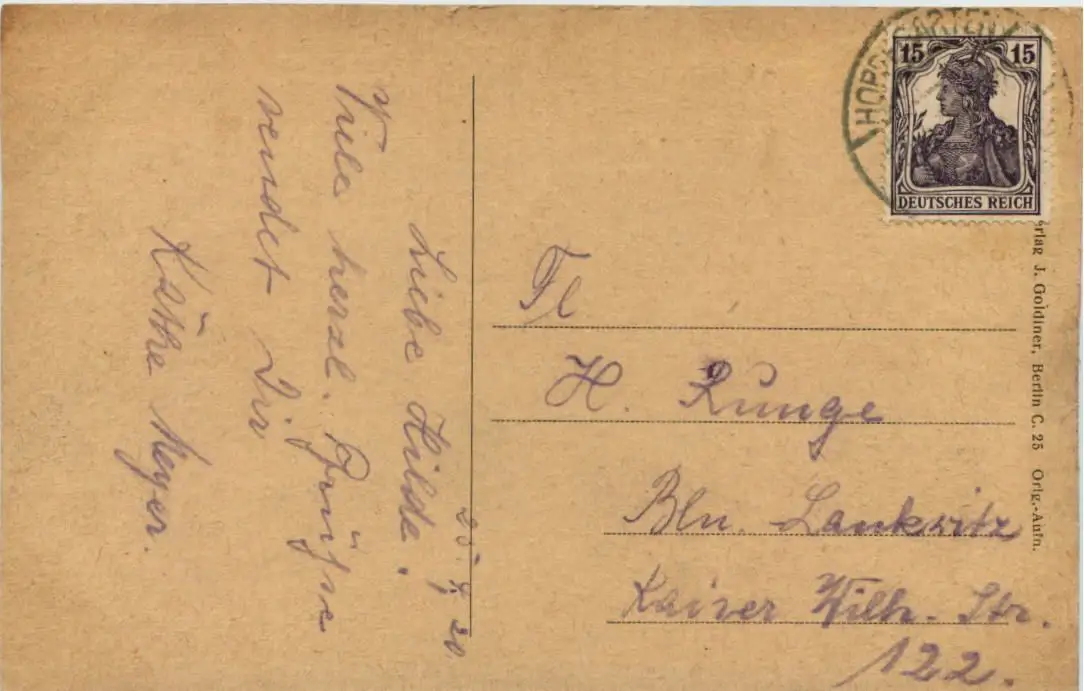 23. 4. 20
Liebe Hilde.
Viele herzl. Grüße
sendet Dir
Käthe Meyer.
15 15
DEUTSCHES REICH
Fl
H. Runge
Bln. Lankwitz
Kaiser Wilh. Str.
122.
erlag J. Goldiner, Berlin C. 25 Orig.-Aufn.